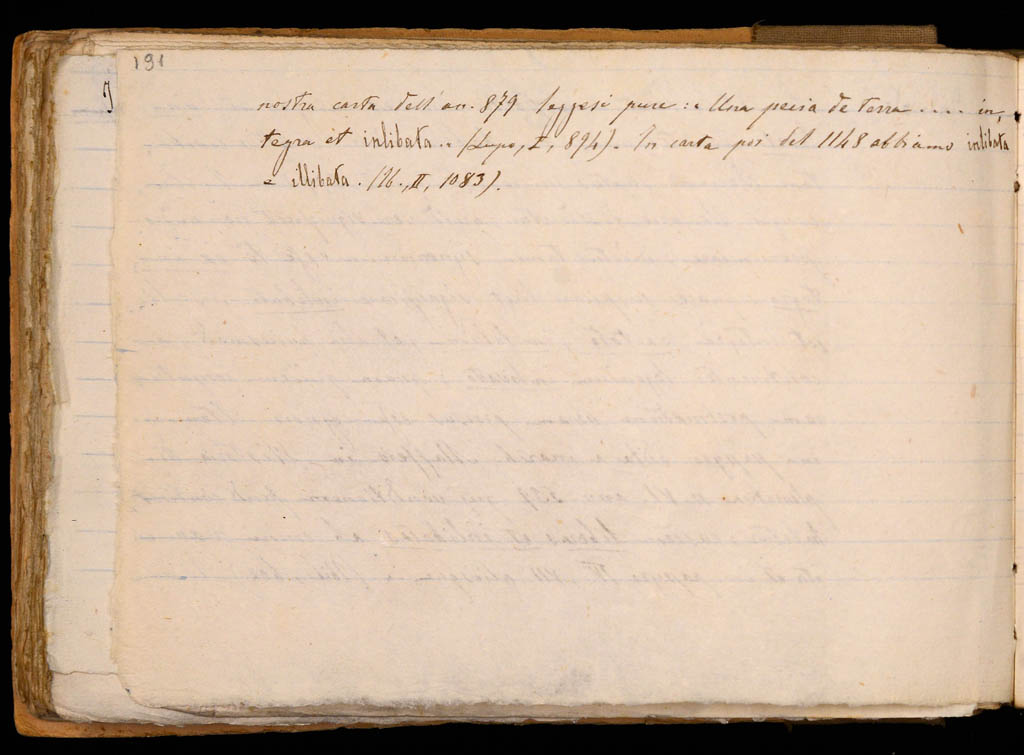 191
nostra carta dell'an. 879 leggesi pure: « Una pecia de terra .... in,
tegra et inlibata. » (Lupo, I, 894). In carta poi del 1148 abbiamo inlibata
e illibata. (Ib., II, 1083).